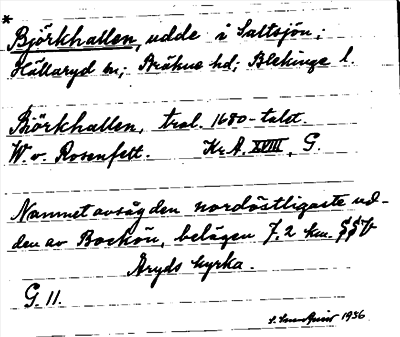 * Björkhallen, udde i Saltsjön;
Hällaryd sn; Bräkne hd; Blekinge l.
Björkhallen, trol. 1680-talet.
W. v. Rosenfelt. Kr. A. XVIII, G.
Namnet avsåg den nordöstligaste ud-
den av Bockön, belägen 7,2 km. SSV
Åryds kyrka.
G. 11.
1936